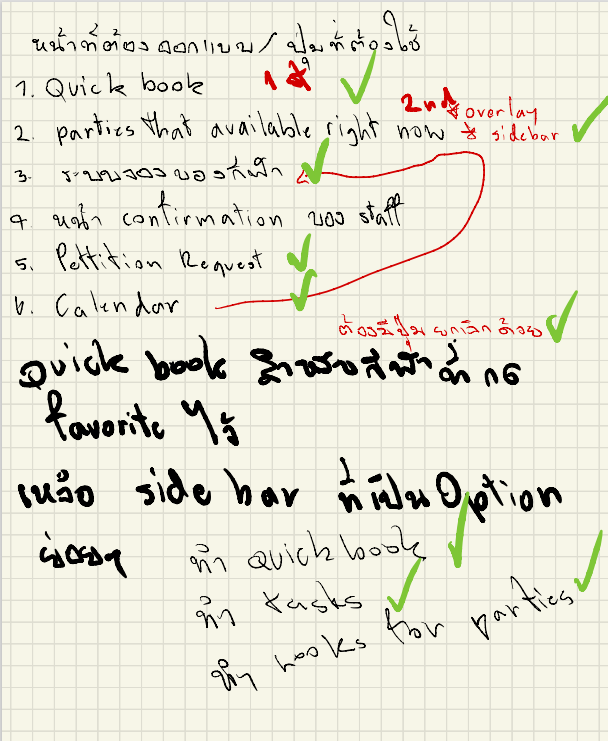 หน้าที่ต้องออกแบบ / ปุ่มที่ต้องใช้
1. Quick book 1st
2. parties that available right now 2nd * overlay * sidebar
3. ระบบจองของกีฬา
4. หน้า confirmation ของ staff
5. Pettition Request
6. Calendar
ต้องมีปุ่มยกเลิกด้วย
Quick book สำหรับกีฬาที่กด
favorite ไว้
เหลือ side bar ที่เป็น Option
ย่อยๆ ทำ quickbook
ทำ tasks
ทำ books for parties